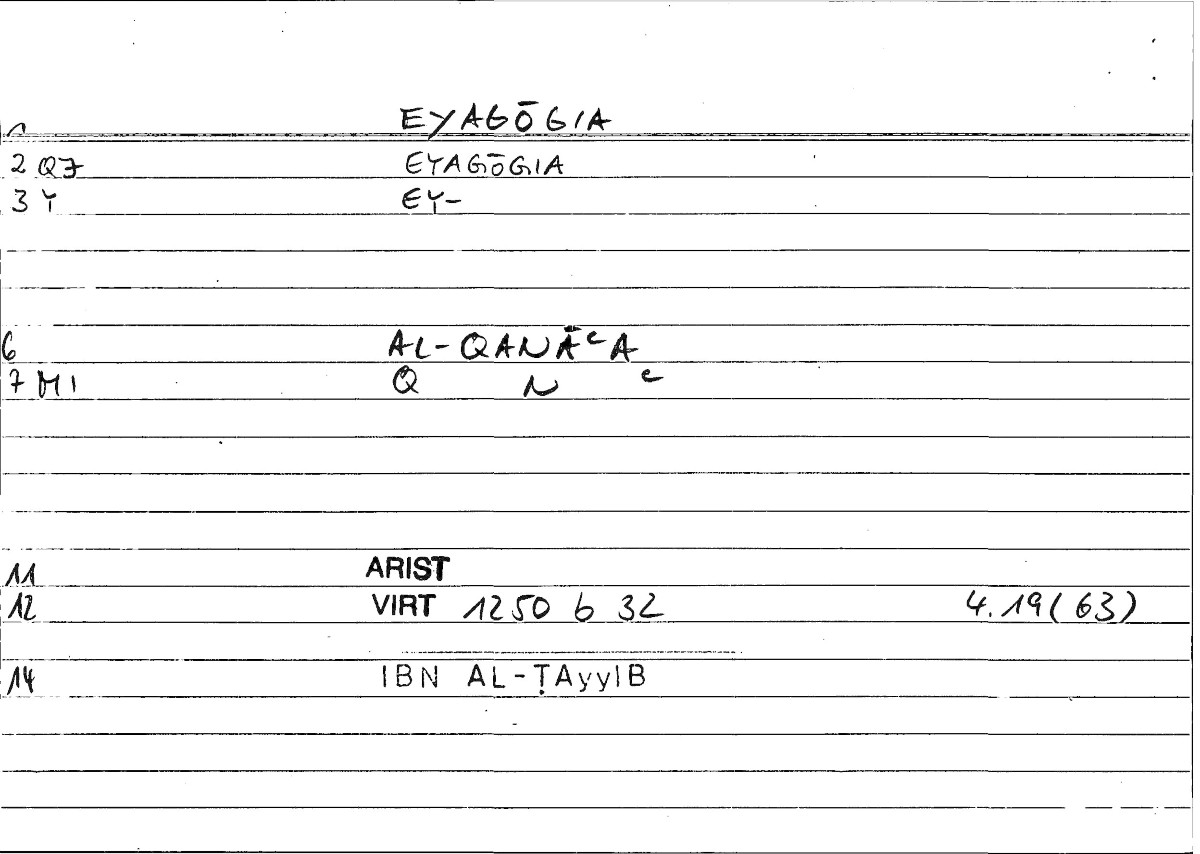 1 EYAGŌGIA
2 Q7 EYAGŌGIA
3 Y EY-
6 AL-QANĀʿA
7 MI Q N ʿ
11 ARIST
12 VIRT 1250 b 32 4.19(63)
14 IBN AL-ṬAyyIB